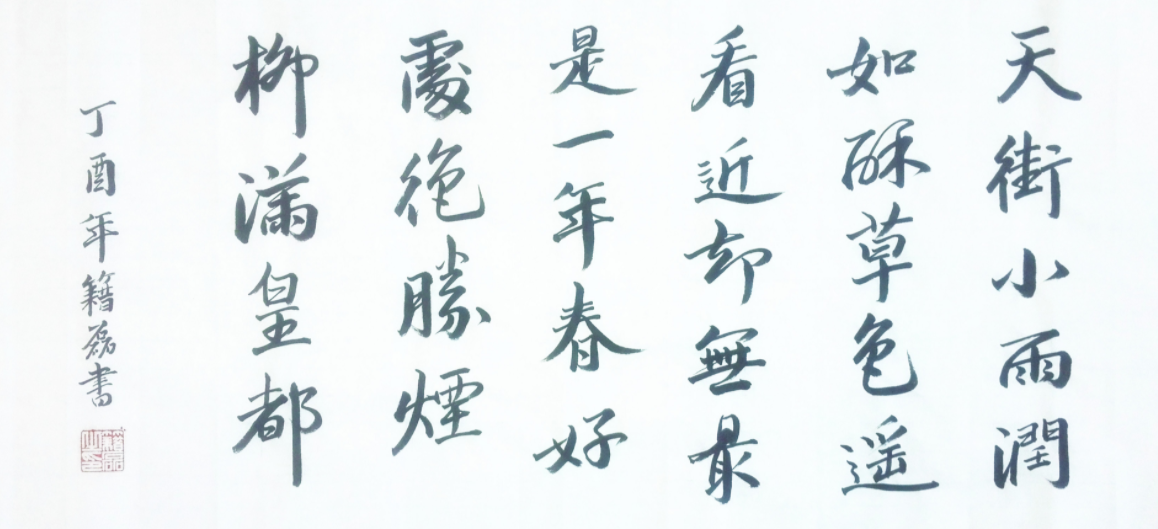 天街小雨潤
如酥草色遥
看近却無最
是一年春好
處絕勝煙
柳滿皇都
丁酉年籍磊書